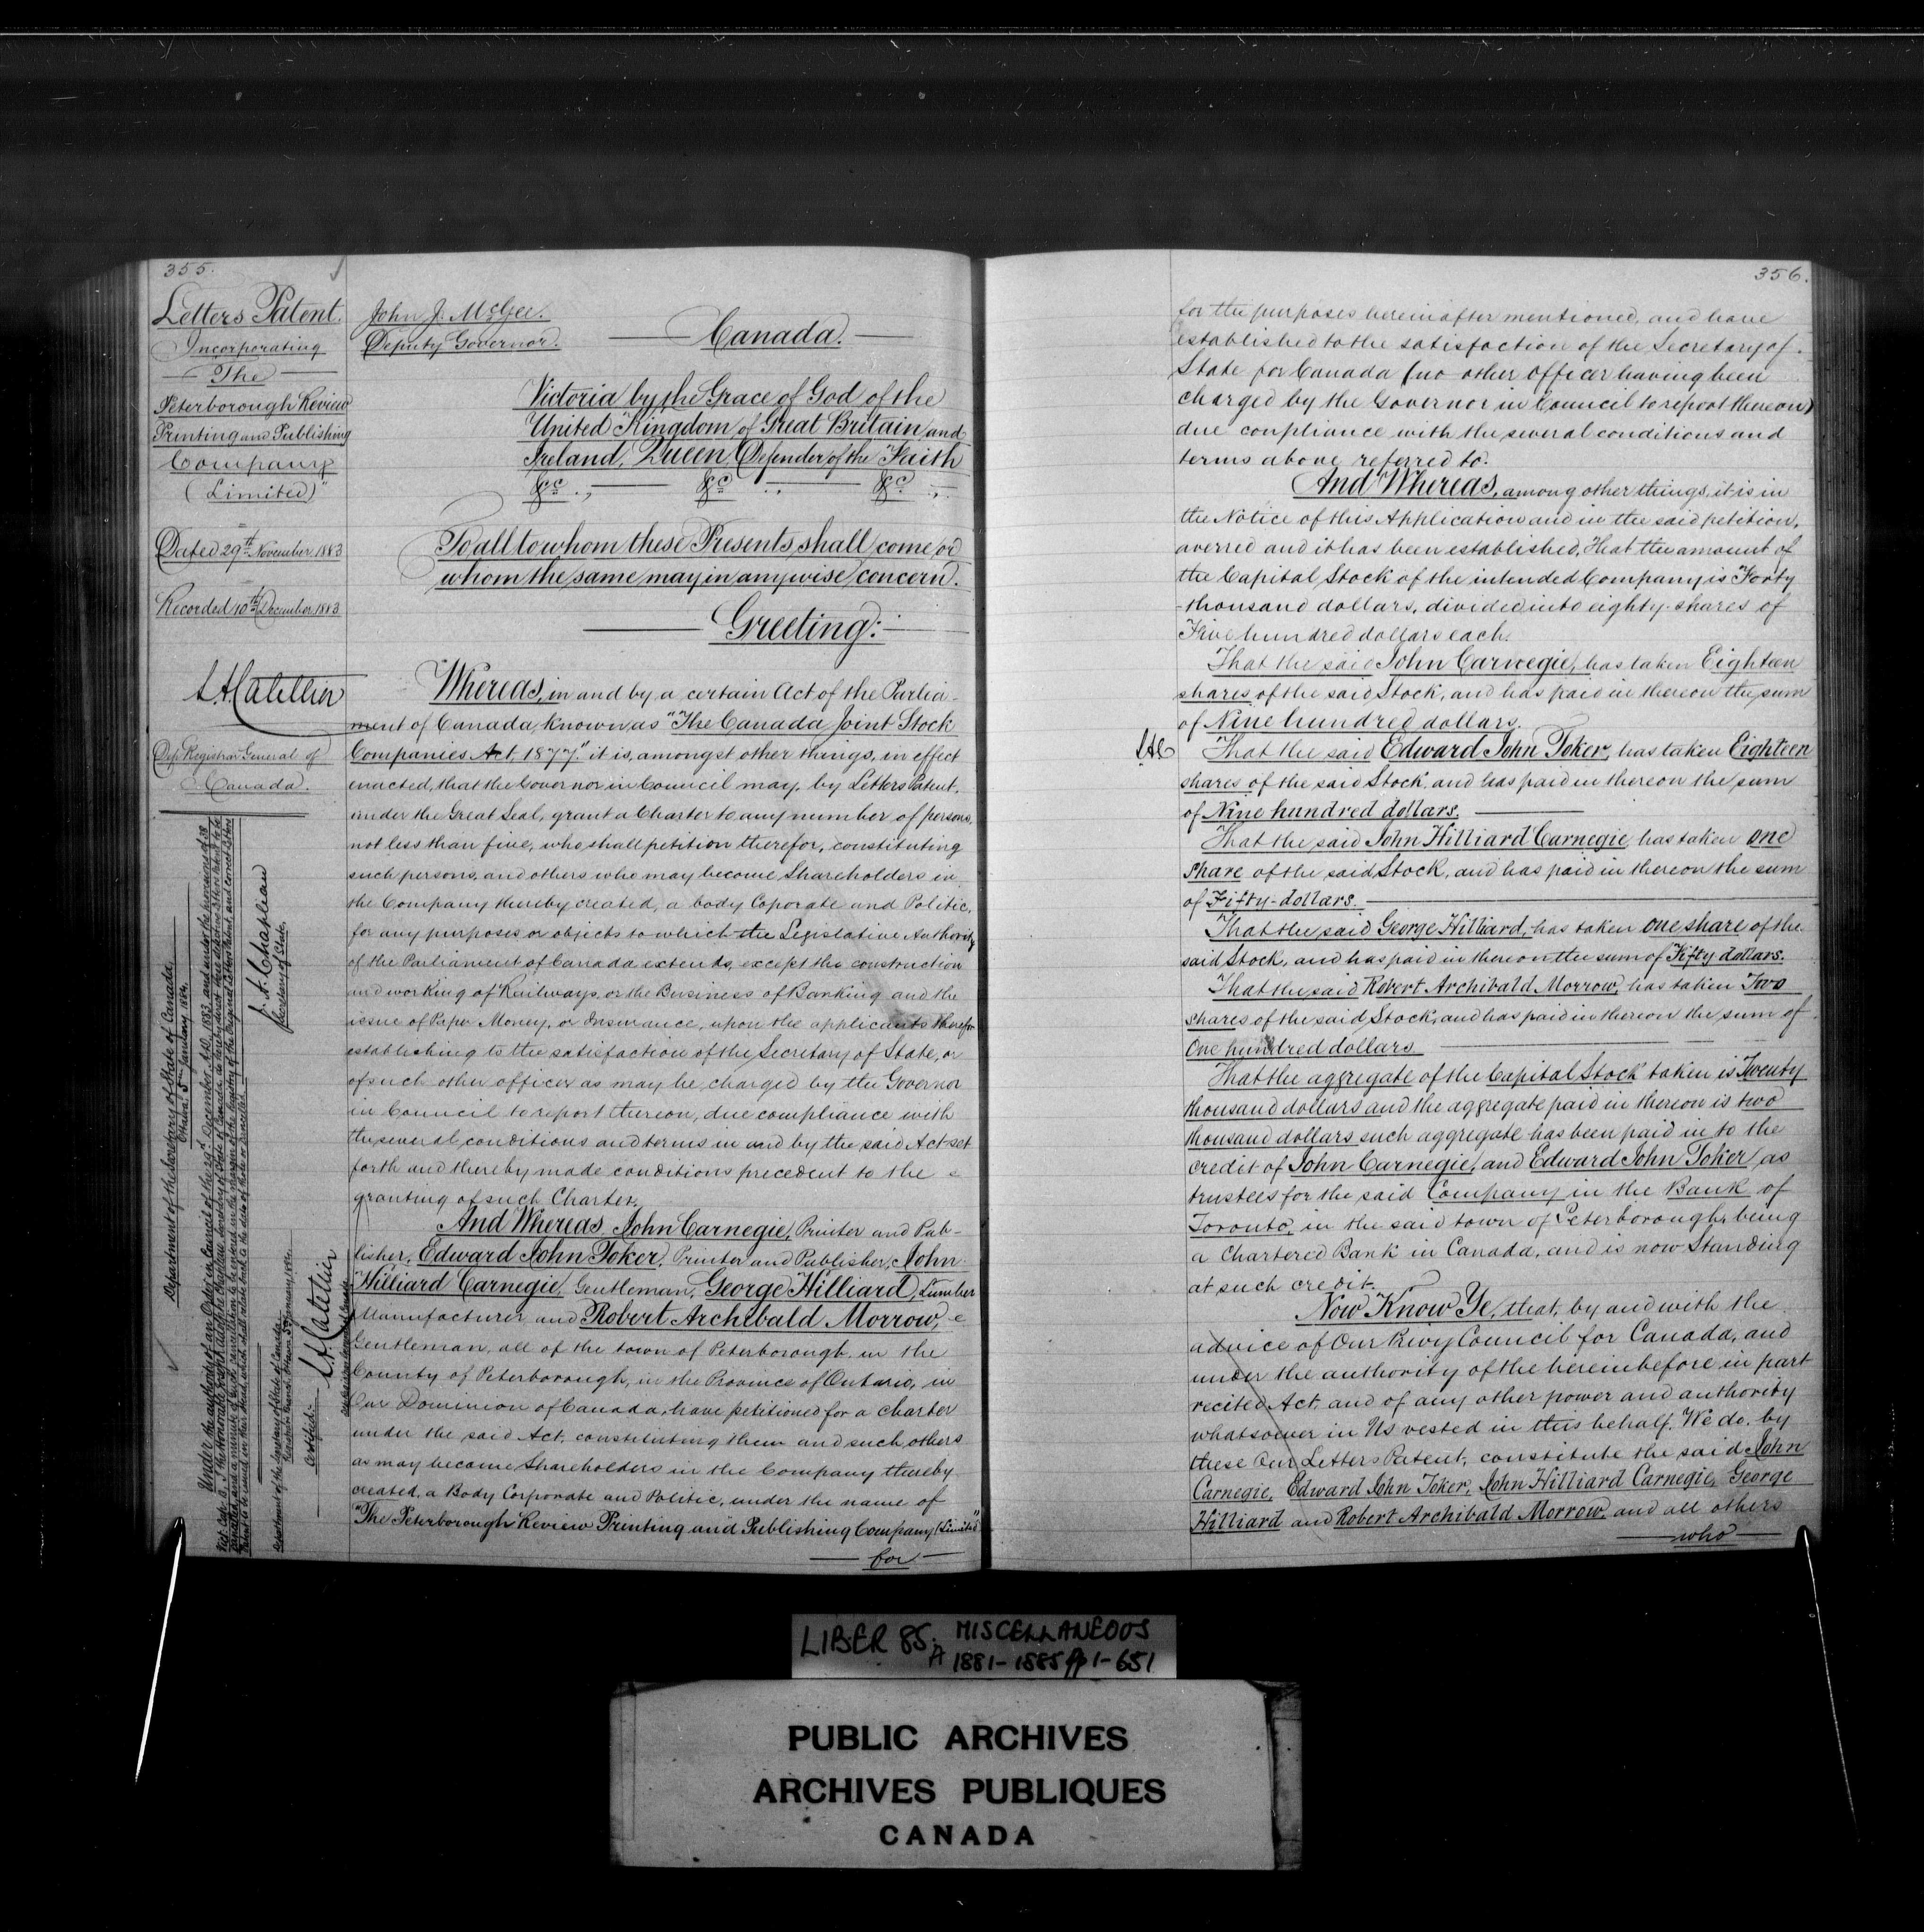 355.
Letters Patent.
Incorporating
The
Peterborough Review
Printing and Publishing
Company
(Limited)"
Dated 29th November 1883
Recorded 10th December 1883
L.A. Catellier
Dep. Registrar General of
Canada.
Department of the Secretary of State of Canada,
Ottawa, 5th January 1884.
Under the authority of an Order in Council of the 29th December, A.D. 1883, and under the provisions of 38
Vict. Cap. J. A. Chapleau, Secretary of State of Canada, do hereby direct
cancelled, and a minute of such cancellation to be entered in the margin of the Registry of the Original Letters Patent, and correct Letters
Patent to be issued in their stead, which shall relate back to the date of those so cancelled.
J. A. Chapleau
Secretary of State.
Department of the Secretary of State of Canada.
Registrar's Branch, Ottawa 5th January 1884.
Certified:—
L.A. Catellier
John J. McGee.
Deputy Governor.
Canada.
Victoria by the Grace of God of the
United Kingdom of Great Britain and
Ireland, Queen, Defender of the Faith
&c., &c., &c.,
To all to whom these Presents shall come or
whom the same may in anywise concern.
Greeting:
Whereas, in and by a certain Act of the Parlia-
ment of Canada, known as "The Canada Joint Stock
Companies Act, 1877." it is, amongst other things, in effect
enacted, that the Governor in Council may, by Letters Patent,
under the Great Seal, grant a Charter to any number of persons,
not less than five, who shall petition therefor, constituting
such persons, and others who may become Shareholders in
the Company thereby created, a body Coporate and Politic,
for any purposes or objects to which the Legislative Authority
of the Parliament of Canada extends, except the construction
and working of Railways, or the Business of Banking and the
issue of Paper Money, or Insurance, upon the applicants therefor
establishing to the satisfaction of the Secretary of State, or
of such other officer as may be charged by the Governor
in Council to report thereon, due compliance with
the several conditions and terms in and by the said Act set
forth and thereby made conditions precedent to the
granting of such Charter.
And Whereas, John Carnegie, Printer and Pub-
lisher, Edward John Toker, Printer and Publisher, John
Hilliard Carnegie, Gentleman, George Hilliard, Lumber
Manufacturer and Robert Archibald Morrow,
Gentleman, all of the town of Peterborough, in the
County of Peterborough, in the Province of Ontario, in
Our Dominion of Canada, have petitioned for a charter
under the said Act, constituting them and such others
as may become Shareholders in the Company thereby
created, a Body Corporate and Politic, under the name of
"The Peterborough Review Printing and Publishing Company (Limited)"
for
356.
for the purposes hereinafter mentioned, and have
established to the satisfaction of the Secretary of
State for Canada (no other officer having been
charged by the Governor in Council to report thereon)
due compliance with the several conditions and
terms above referred to.
And Whereas, among other things, it is in
the Notice of this Application and in the said petition,
averred and it has been established, That the amount of
the Capital Stock of the intended Company is Forty
thousand dollars, divided into eighty shares of
Five hundred dollars each.
That the said John Carnegie, has taken Eighteen
shares of the said Stock, and has paid in thereon the sum
of Nine hundred dollars.
LAC
That the said Edward John Toker, has taken Eighteen
shares of the said Stock and has paid in thereon the sum
of Nine hundred dollars.
That the said John Hilliard Carnegie, has taken one
share of the said Stock, and has paid in thereon the sum
of Fifty-dollars.
That the said George Hilliard, has taken one share of the
said Stock, and has paid in thereon the sum of Fifty dollars.
That the said Robert Archibald Morrow, has taken Two
shares of the said Stock, and has paid in thereon the sum of
One hundred dollars
That the aggregate of the Capital Stock taken is Twenty
thousand dollars and the aggregate paid in thereon is two
thousand dollars such aggregate has been paid in to the
credit of John Carnegie, and Edward John Toker, as
trustees for the said Company in the Bank of
Toronto, in the said town of Peterborough, being
a Chartered Bank in Canada, and is now Standing
at such credit.
Now Know Ye, that, by and with the
advice of Our Privy Council for Canada, and
under the authority of the hereinbefore in part
recited Act, and of any other power and authority
whatsoever in Us vested in this behalf. We do, by
these Our Letters Patent, constitute the said John
Carnegie, Edward John Toker, John Hilliard Carnegie, George
Hilliard and Robert Archibald Morrow, and all others
who
LIBER 85A MISCELLANEOUS
1881-1885 pp 1-651
PUBLIC ARCHIVES
ARCHIVES PUBLIQUES
CANADA